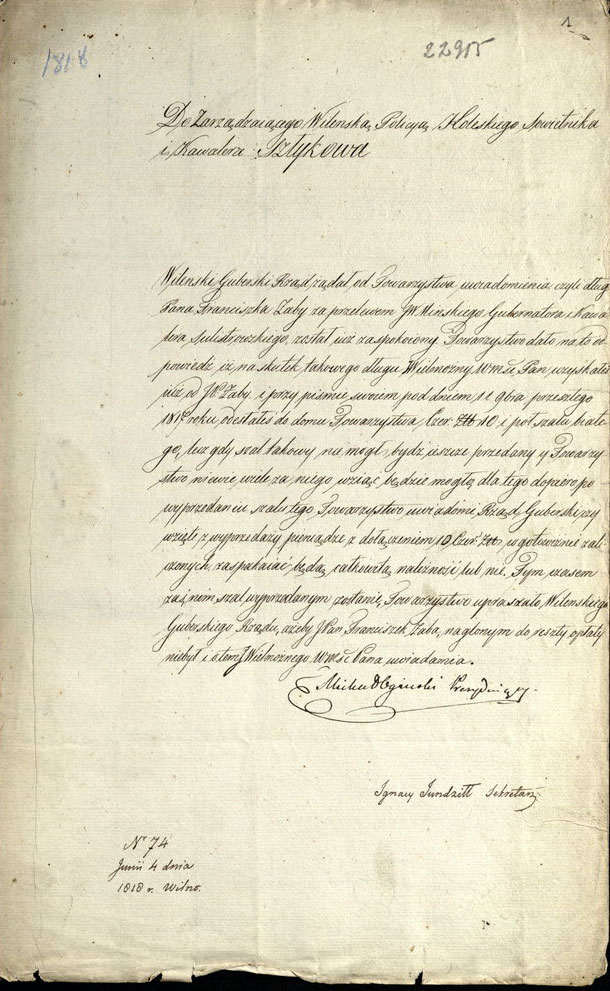 1
1818
22915
Do Zarządzaiącego Wilenską Policyą Koleskiego Sowietnika
i Kawalera Sztykowa
Wilenski Guberski Rząd żądał od Towarzystwa uwiadomienia czyli dług
Pana Franciszka Żaby za przelewem JW Minskiego Gubernatora i Kawa
lera Sulistrowskiego, został iuż zaspokoiony. Towarzystwo dało na to od
powiedź iż na skutek takowego długu Wielmożny WMść Pan uzyskałeś
iuż od JP Żaby, i przy piśmie swoiem pod dniem 11 9bra przeszłego
roku odesłałeś do domu Towarzystwa Czer. Złł 10 i pół szalu białe
go, lecz gdy szal takowy nie mógł bydź ieszcze przedany y Towarzy
stwo niewie, wiele za niego wziąć będzie mogło, dla tego dopiero po
wyprzedaniu szalu tego Towarzystwo uwiadomi Rząd Guberski, czy
wzięte z wyprzedaży pieniądze z dołączeniem 10 Czer. Złł w gotowiznie zali
czonych zaspakaiać będą całkowitą należność lub nie. Tym czasem
zaś nim szal wyprzedanym zostanie, Towarzystwo upraszało Wilenskiego
Guberskiego Rządu, ażeby JPan Franciszek Żaba, naglonym do reszty opłaty
niebył i o tem Wielmożnego WMść Pana uwiadamia.
Michał Ogiński Prezyduiący.
Ignacy Jundziłł Sekretarz
Nr 74
Junii 4 dnia
1818 r. Wilno.